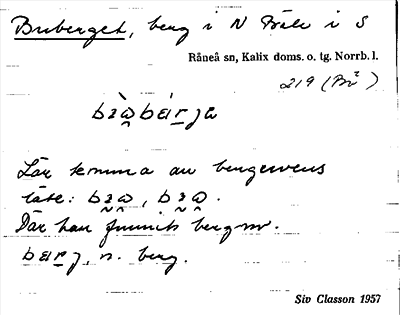 Buberget, berg i N Bäle i S
Råneå sn, Kalix doms. o. tg. Norrb. l.
219 (Br²)
Lär komma av berguvens
läte:
Där har funnits berguv.
n. berg.
Siv Classon 1957